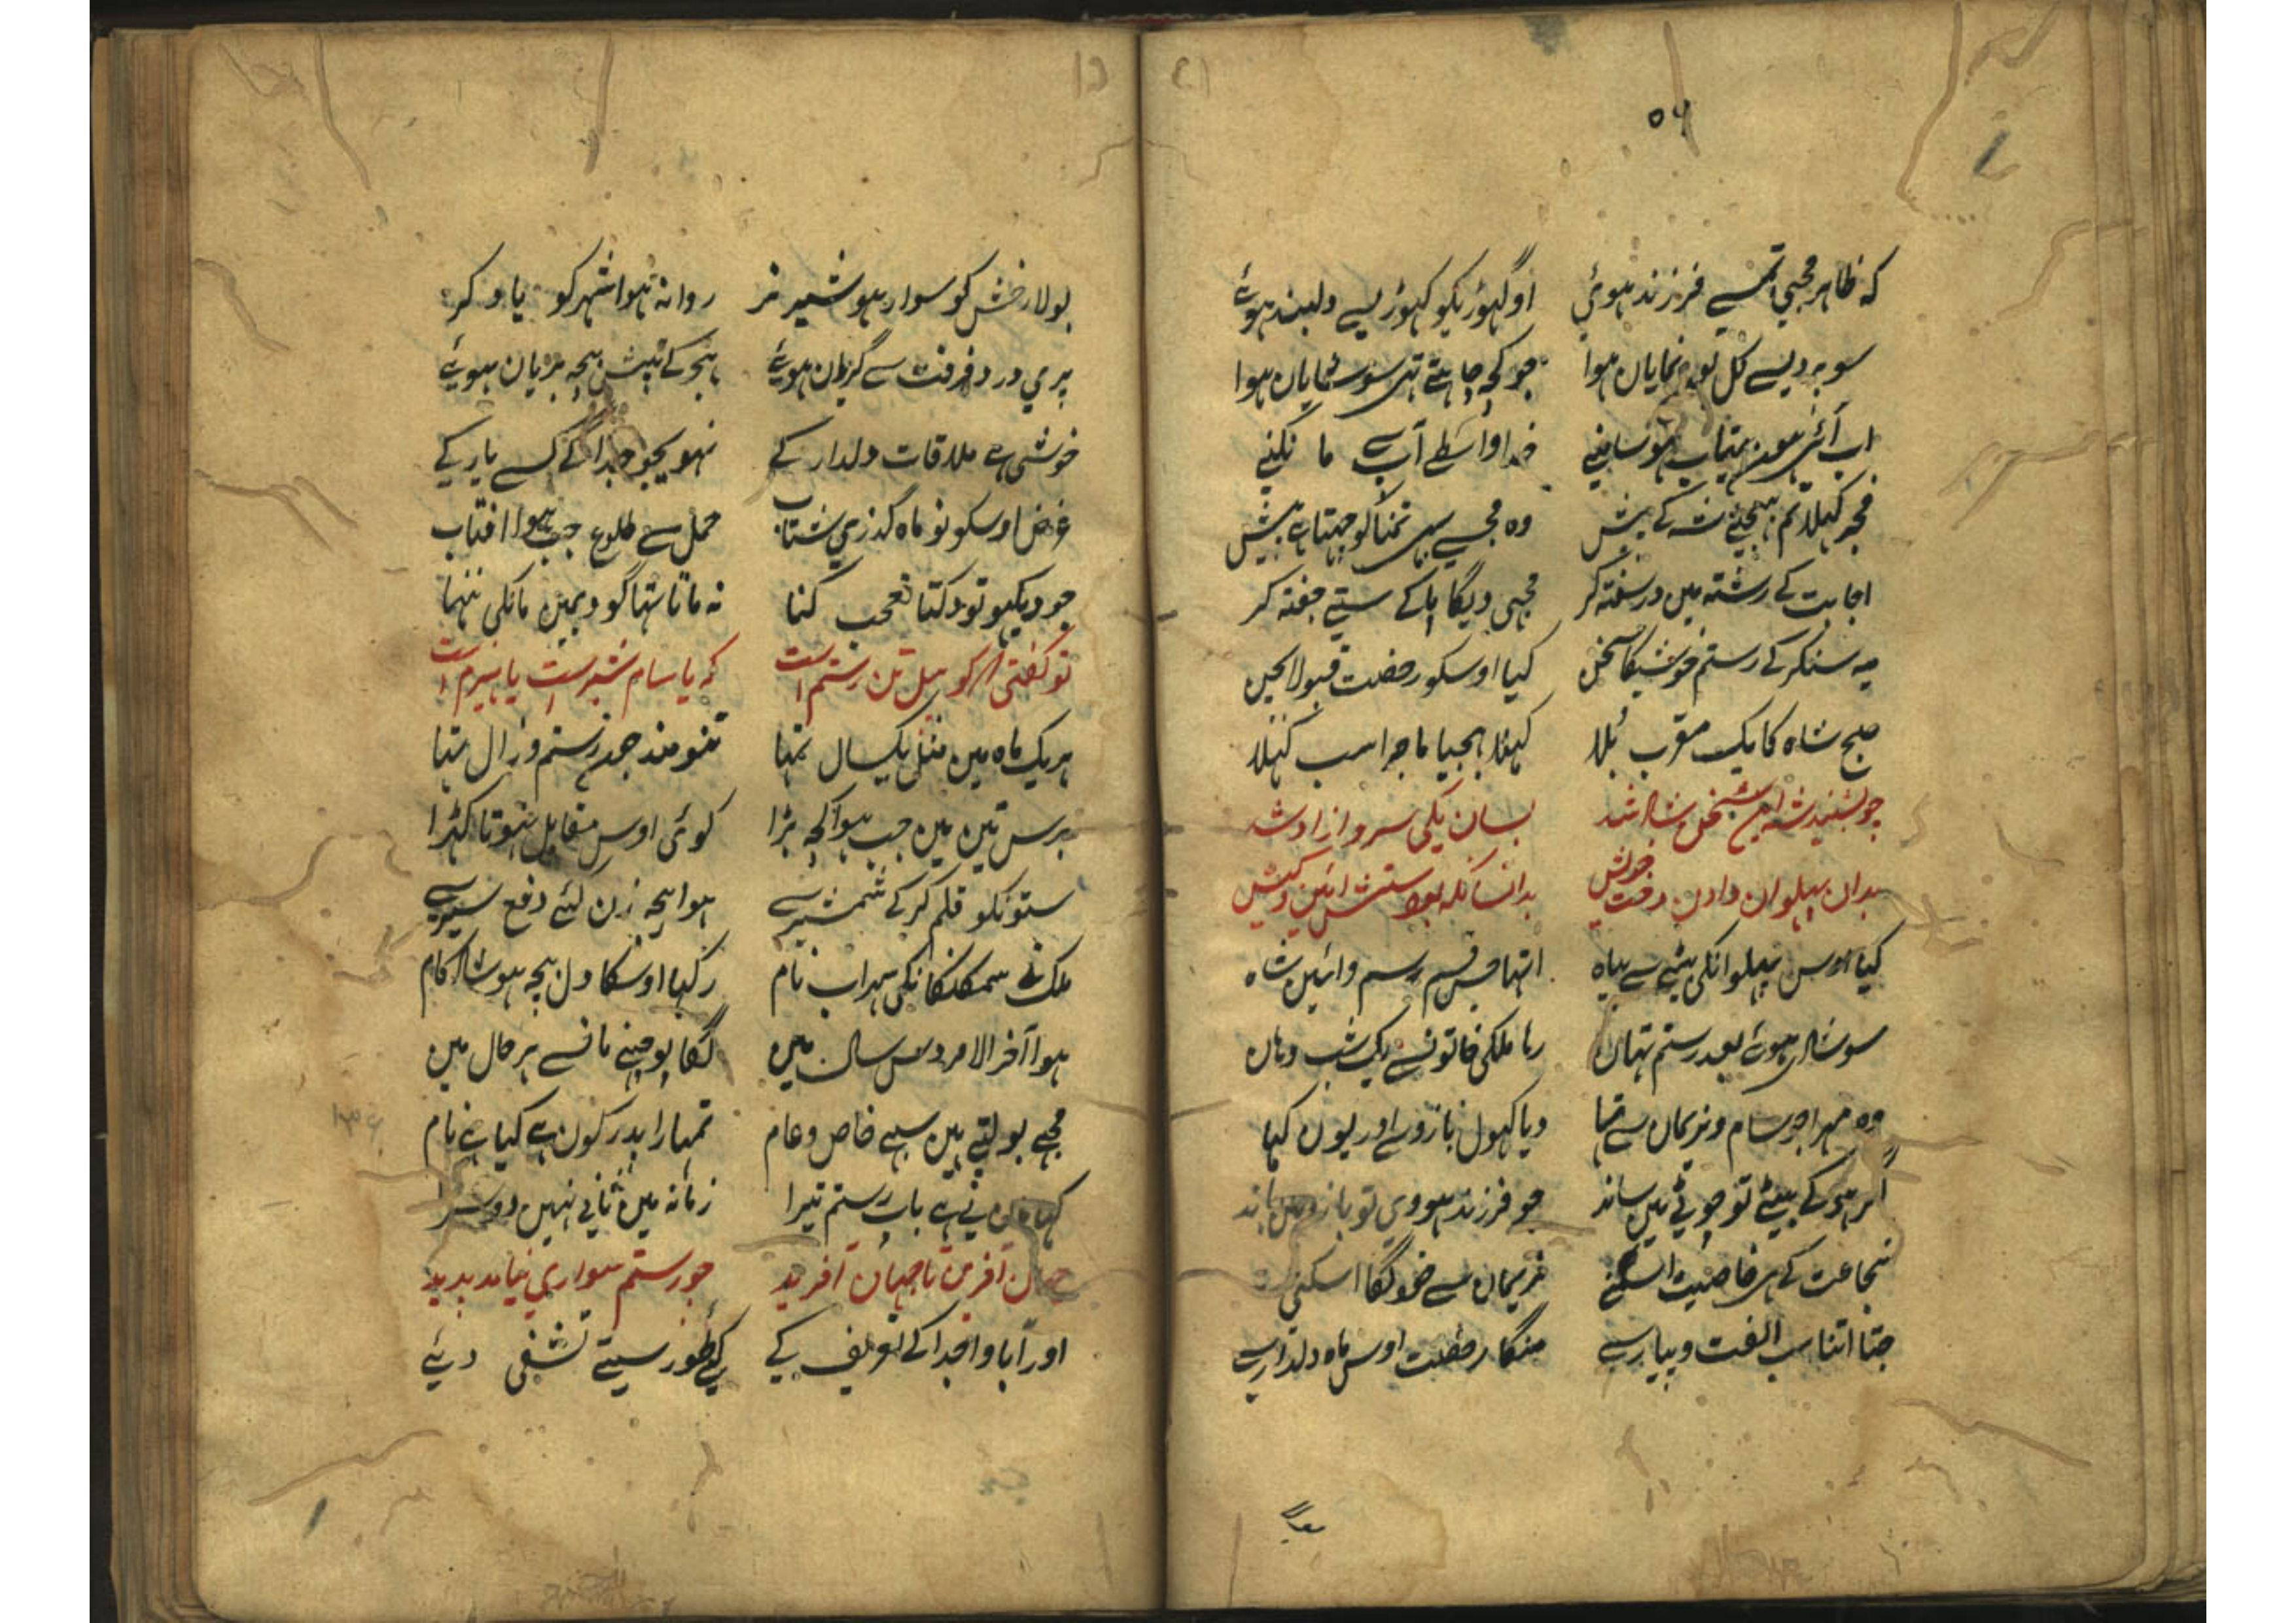 ۵۶
که ظاهر مجهی تمسے فرزند هوئی اوگهوڑیکو گهوڑیسے دلبند هوئے
سو پردیسے کل تو نمایاں هوا جو کچه چاہتے تہی سو سنمایاں هوا
اب آئی هون بیتاب هو سامنے خدا واسطے آپ سے مانگنے
مجے کہلا تم بہیجیئے شہ کے پیش وه مجسے بہی تمنا کو چہتا ہے بیش
اجابت کے رشتہ میں در سفتہ کر مجہی دیگا بابا کے ستے جفتہ کر
یہ سنکر کے رستم خوشیکا سخن کیا اوسکو رخصت قبولا بچن
صبح شاه کا یک مقرب بلا کہلا بہجیا ماجرا سب کہلا
چو بشنید شاه این سخن شاد شد بسان یکی سرو ازاد شد
بدان پہلوان داد دخت خویش بدانسانکه بودستش ائین و کیش
کیا اوس پہلوانکی بیٹی سے بیاه اتہا جس قسم رسم و ائین شاه
سو شادی هوئے بعد رستم تہاں رہا ملکی خاتونسے یک شب وہاں
وه مہرا جو سام و نریماں سے تہا دیا کہول بازو سے اور یوں کہا
اگر هو کے بیٹی تو چوٹی میں ساند جو فرزند هووی تو بازو میں باند
شجاعت کے ہی خاصیت اسکنے نریماں سے خو لگا اسکنی
جتا اتنا سب الفت و پیار سے منگا رخصت اوس ماه دلدار سے
بولا رخش کو سوار هو شیر نر روانہ هوا شہر کو یاد کر
پری درد فرقت سے گریاں هوئے ہجر کے تپش بیچہ بریان هوئے
خوشی ہے ملاقات دلدار کے نہویجو جدا گے کسے یار کے
غرض اوسکو نو ماه گذری شتاب حمل سے طلوع جب هوا افتاب
جو دیکہو تو دکتا تعجب کنا نہ ماتا ستہا گود میں مانکی ننہا
تو گفتی که گو پیل تن رستم است که یا سام شیر است یا نیرم است
ہریک ماه میں مثل یکسال تہا تنومند جو رستم و زال تہا
برس تین میں جب هوا کچہ بڑا کوئی اوس مقابل نہوتا کہڑا
ستونکو قلم کر کے شمشیر سے هوا بیچہ زن لئے دفع شیر سے
ملک نے سمنگانکی سہراب نام رکہا اوسکا دل بیچہ هو شاد کام
هوا آخر الامر دس سال میں لگا پوچہنے ما نسے ہر حال میں
مجے بولتے ہیں سبے خاص و عام تمہارا پدر کون ہے کیا ہے نام
کہا مان نے ہے باپ رستم تیرا زمانہ میں ثانی نہیں دوسرا
جہان آفرین تا جہان آفرید چو رستم سواری نیامد پدید
اور آبا و اجدا کے تعریف کیے کے طور سیتے تشفی دیئے